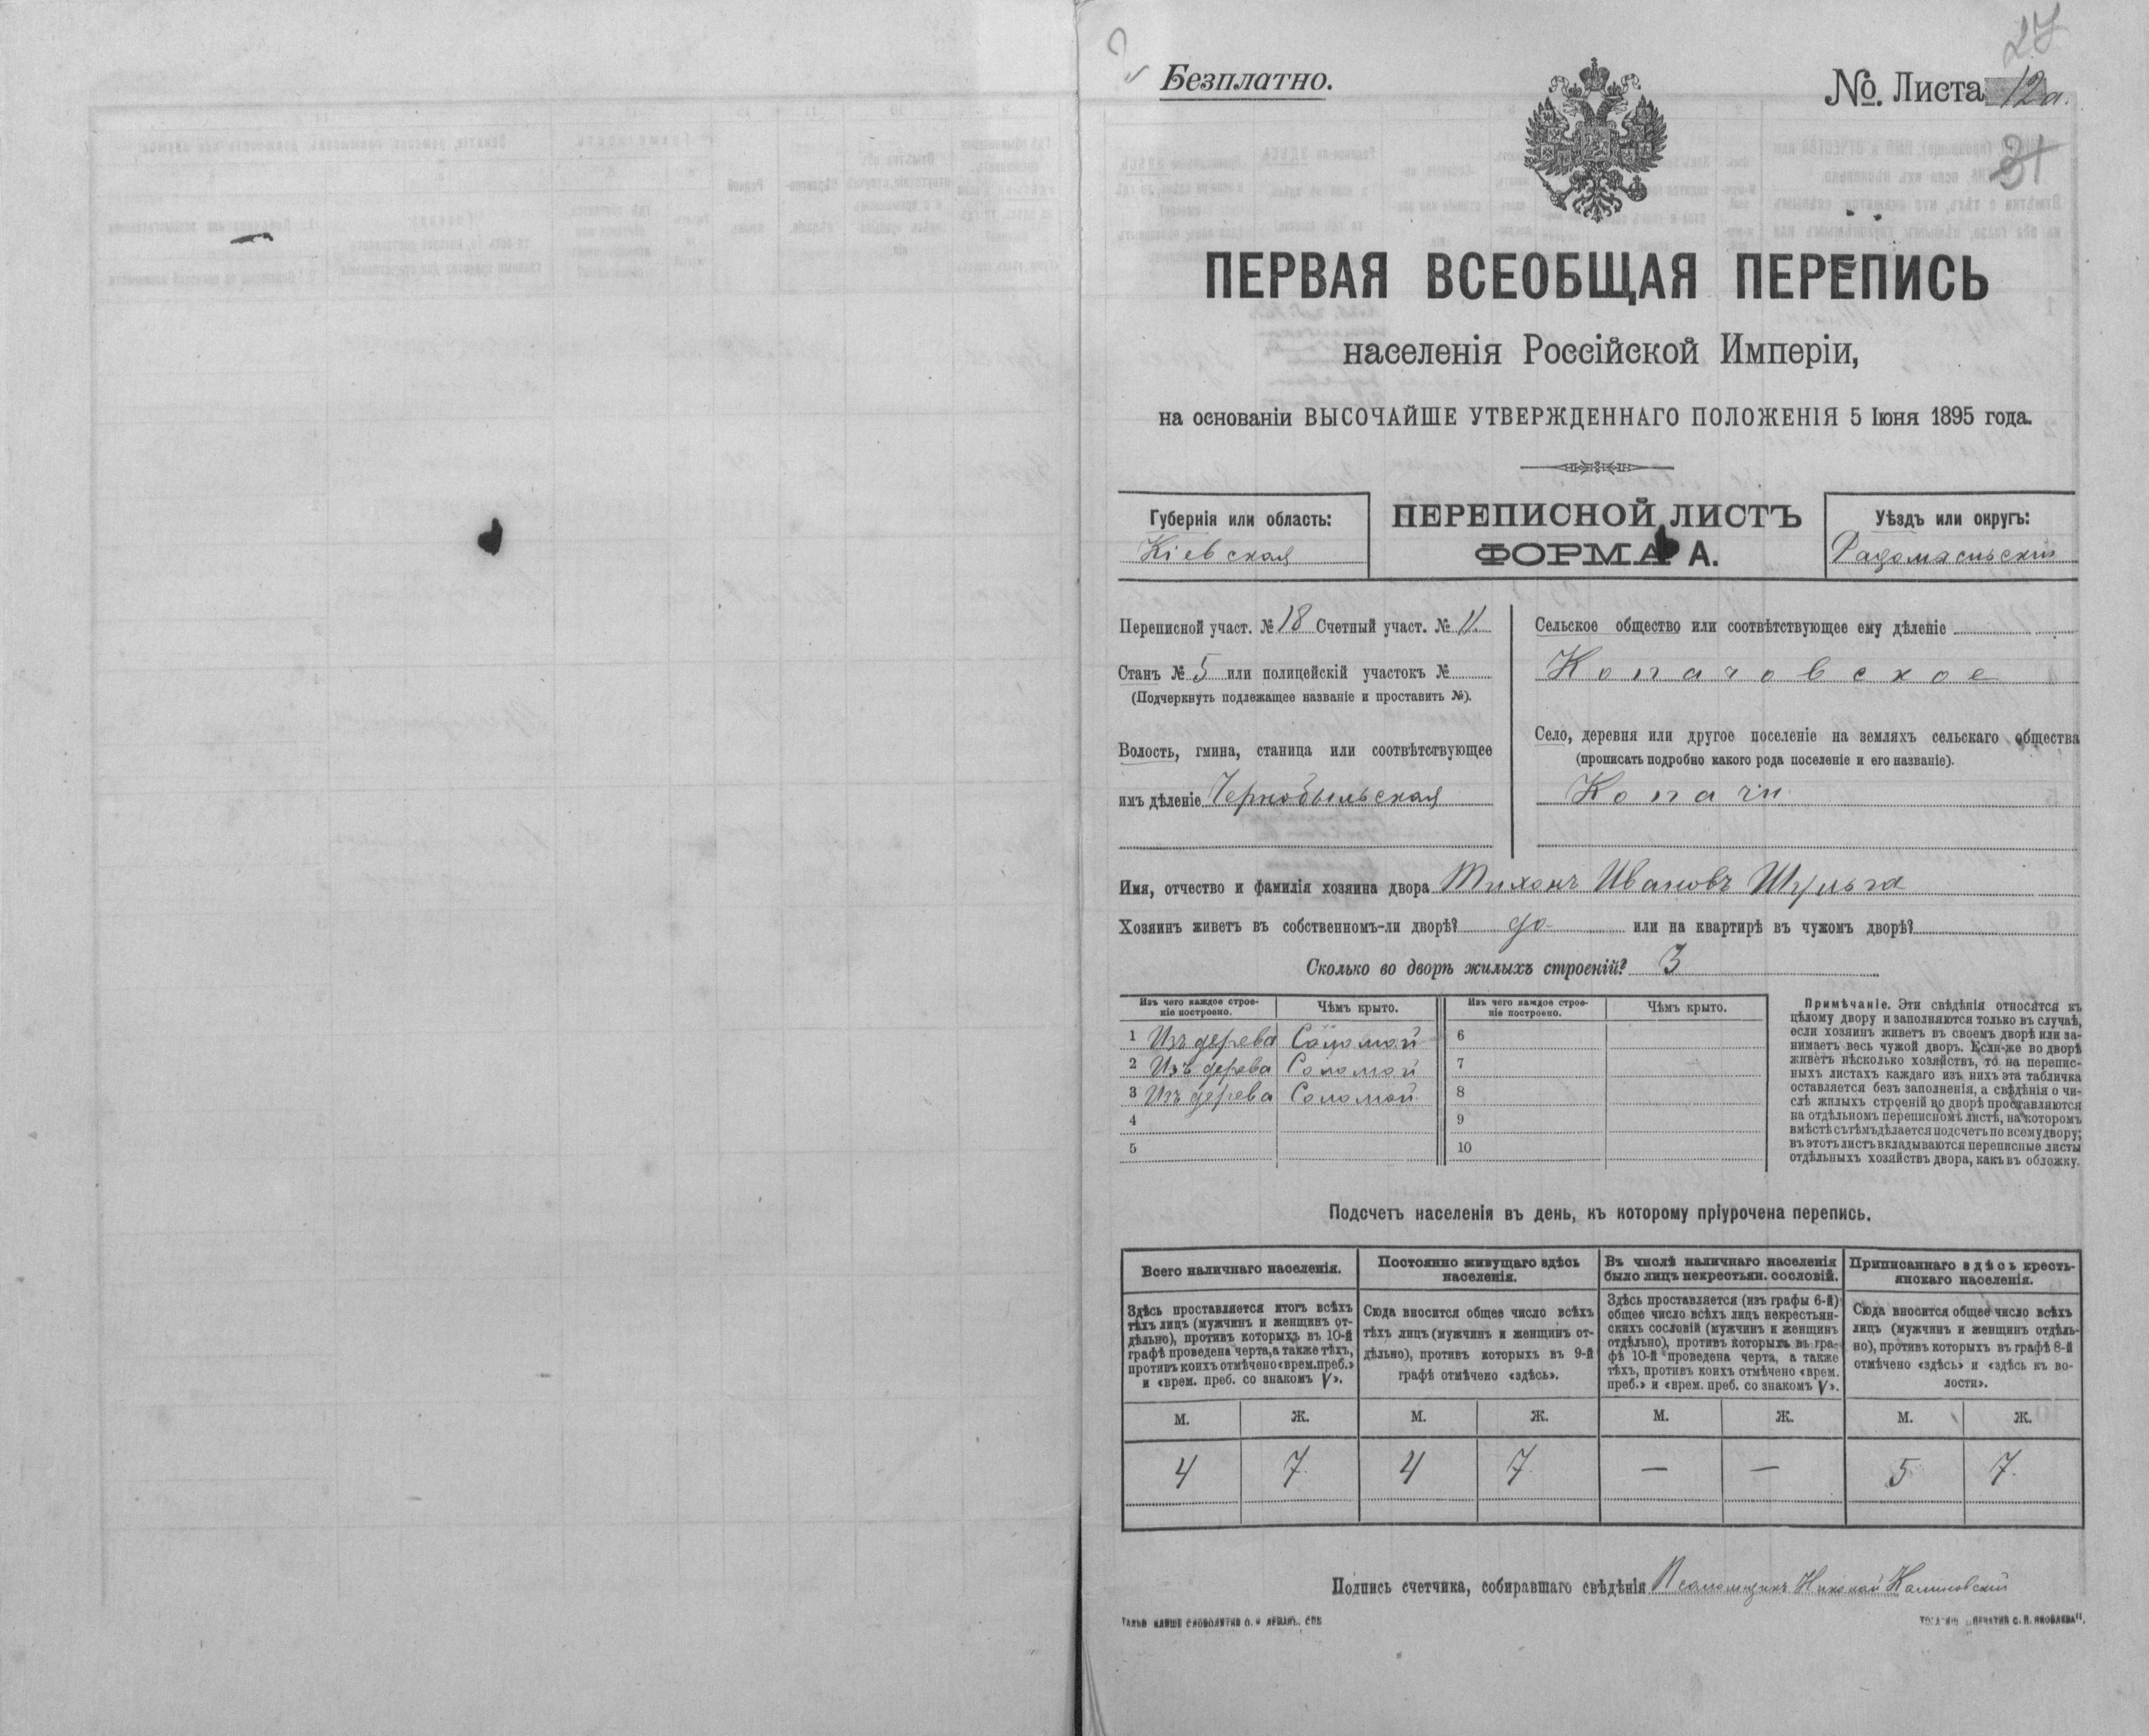 Безплатно.
№. Листа 12а.
27
31
ПЕРВАЯ ВСЕОБЩАЯ ПЕРЕПИСЬ
населенія Россійской Имперіи,
на основаніи ВЫСОЧАЙШЕ УТВЕРЖДЕННАГО ПОЛОЖЕНІЯ 5 Іюня 1895 года.
Губернія или область:
Кіевская
ПЕРЕПИСНОЙ ЛИСТЪ
ФОРМА А.
Уѣздъ или округъ:
Радомысьскій
Переписной участ. № 18 Счетный участ. № 11.
Станъ № 5 или полицейскій участокъ №
(Подчеркнуть подлежащее названіе и проставить №).
Волость, гмина, станица или соотвѣтствующее
имъ дѣленіе Чернобыльская
Сельское общество или соотвѣтствующее ему дѣленіе
Копачовское
Село, деревня или другое поселеніе на земляхъ сельскаго общества
(прописать подробно какого рода поселеніе и его названіе).
Копачи
Имя, отчество и фамилія хозяина двора Тихонъ Ивановъ Шульга
Хозяинъ живетъ въ собственномъ-ли дворѣ? да или на квартирѣ въ чужомъ дворѣ?
Сколько во дворѣ жилыхъ строеній? 3
Изъ чего каждое строе-
ніе построено.
Чѣмъ крыто.
Изъ чего каждое строе-
ніе построено.
Чѣмъ крыто.
1 Изъ дерева Соломой 6
2 Изъ дерева Соломой 7
3 Изъ дерева Соломой 8
4 9
5 10
Примѣчаніе. Эти свѣдѣнія относятся къ
цѣлому двору и заполняются только въ случаѣ,
если хозяинъ живетъ въ своемъ дворѣ или за-
нимаетъ весь чужой дворъ. Если-же во дворѣ
живетъ нѣсколько хозяйствъ, то на перепис-
ныхъ листахъ каждаго изъ нихъ эта табличка
оставляется безъ заполненія, а свѣдѣнія о чи-
слѣ жилыхъ строеній во дворѣ проставляются
на отдѣльномъ переписномъ листѣ, на которомъ
вмѣстѣ съ тѣмъ дѣлается подсчетъ по всему двору;
въ этотъ листъ вкладываются переписные листы
отдѣльныхъ хозяйствъ двора, какъ въ обложку.
Подсчетъ населенія въ день, къ которому пріурочена перепись.
Всего наличнаго населенія.
Здѣсь проставляется итогъ всѣхъ
тѣхъ лицъ (мужчинъ и женщинъ от-
дѣльно), противъ которыхъ въ 10-й
графѣ проведена черта, а также тѣхъ,
противъ коихъ отмѣчено «врем. преб.»
и «врем. преб. со знакомъ V».
Постоянно живущаго здѣсь
населенія.
Сюда вносится общее число всѣхъ
тѣхъ лицъ (мужчинъ и женщинъ от-
дѣльно), противъ которыхъ въ 9-й
графѣ отмѣчено «здѣсь».
Въ числѣ наличнаго населенія
было лицъ некрестьян. сословій.
Здѣсь проставляется (изъ графы 6-й)
общее число всѣхъ лицъ некрестьян-
скихъ сословій (мужчинъ и женщинъ
отдѣльно), противъ которыхъ въ гра-
фѣ 10-й проведена черта, а также
тѣхъ, противъ коихъ отмѣчено «врем.
преб.» и «врем. преб. со знакомъ V».
Приписаннаго здѣсь кресть-
янскаго населенія.
Сюда вносится общее число всѣхъ
лицъ (мужчинъ и женщинъ отдѣль-
но), противъ которыхъ въ графѣ 8-й
отмѣчено «здѣсь» и «здѣсь къ во-
лости».
М. Ж. М. Ж. М. Ж. М. Ж.
4 7. 4 7. — — 5 7.
Подпись счетчика, собиравшаго свѣдѣнія Псаломщикъ Николай Калиновскій